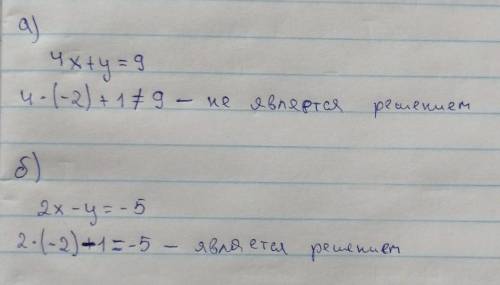 а)
4x+y=9
4·(-2)+1≠9 – не является решением
б)
2x-y=-5
2·(-2)-1=-5 – является решением